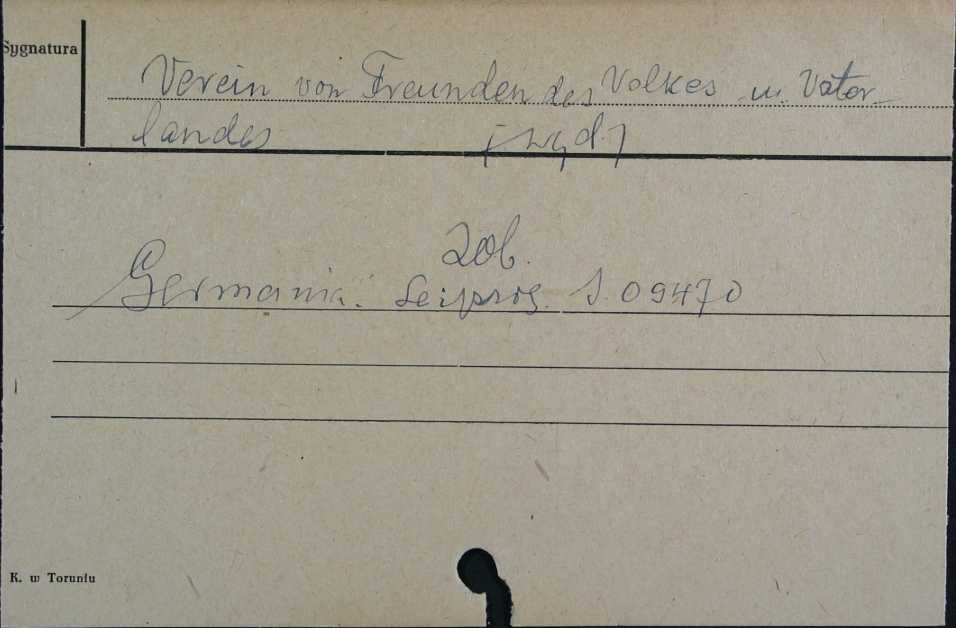 Sygnatura
Verein von Freunden des Volkes u. Vater-
landes [wyd.]
Zob.
Germania. Leipzig. S. 09470
K. w Toruniu